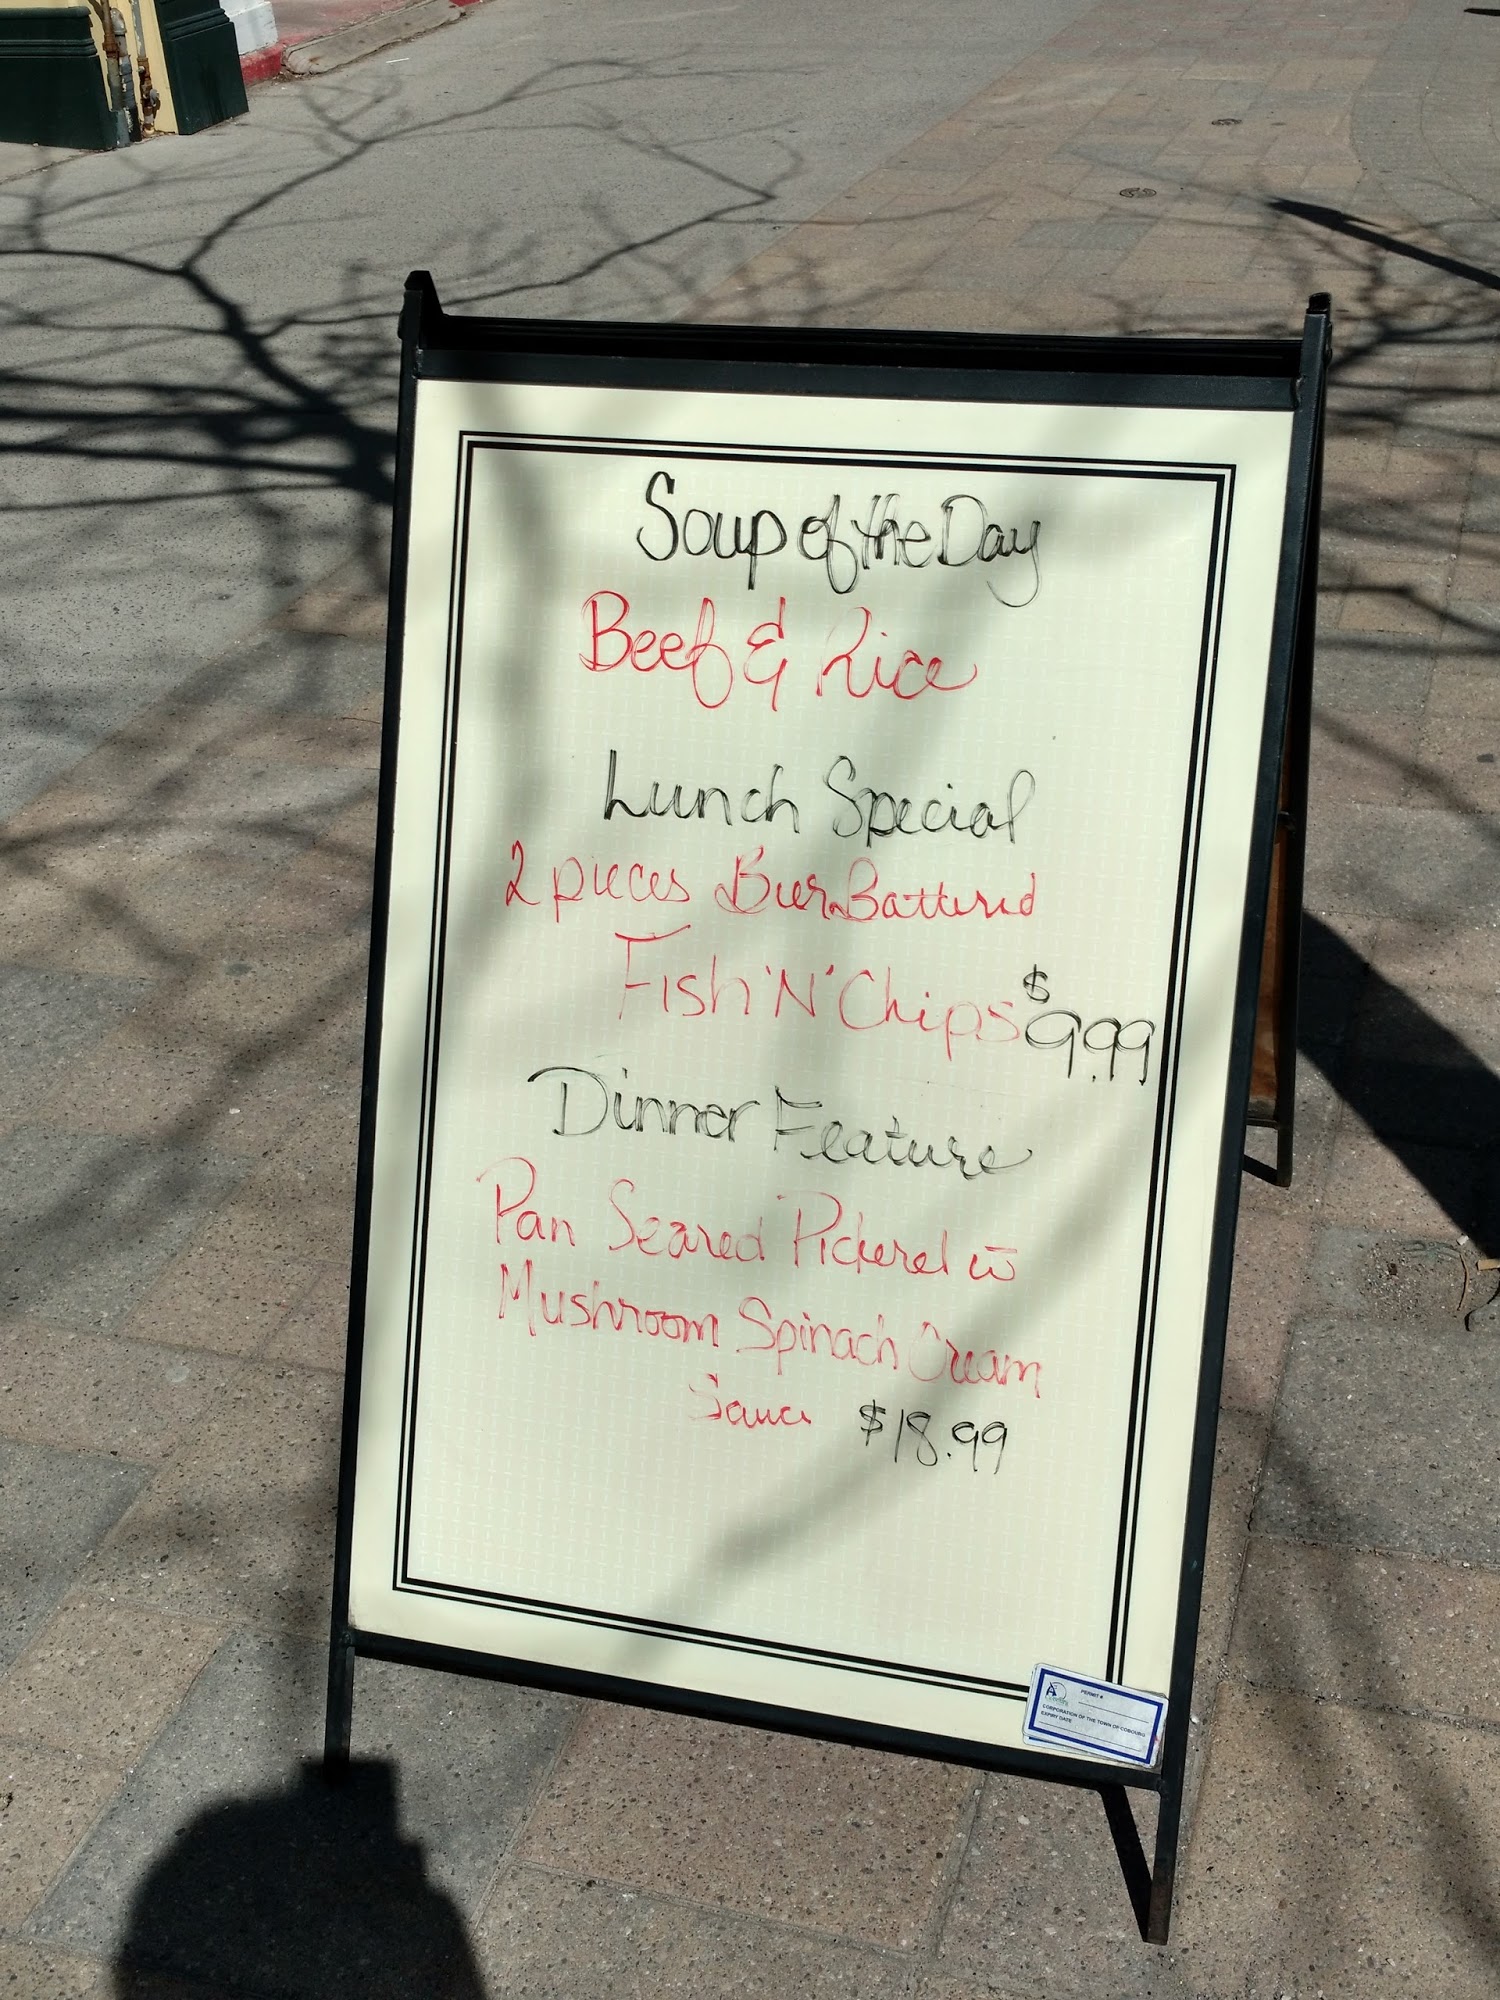 Soup of the Day
Beef & Rice
Lunch Special
2 pieces Beer Battered
Fish 'N' Chips $9.99
Dinner Feature
Pan Seared Pickerel w̄
Mushroom Spinach Cream
Sauce $18.99
PERMIT #
CORPORATION OF THE TOWN OF COBOURG
EXPIRY DATE